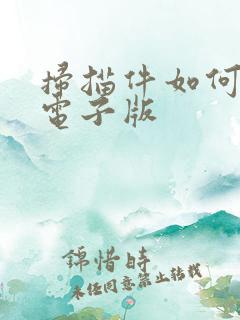 掃描件如何
電子版
錦惜時
未任同意禁止轉載